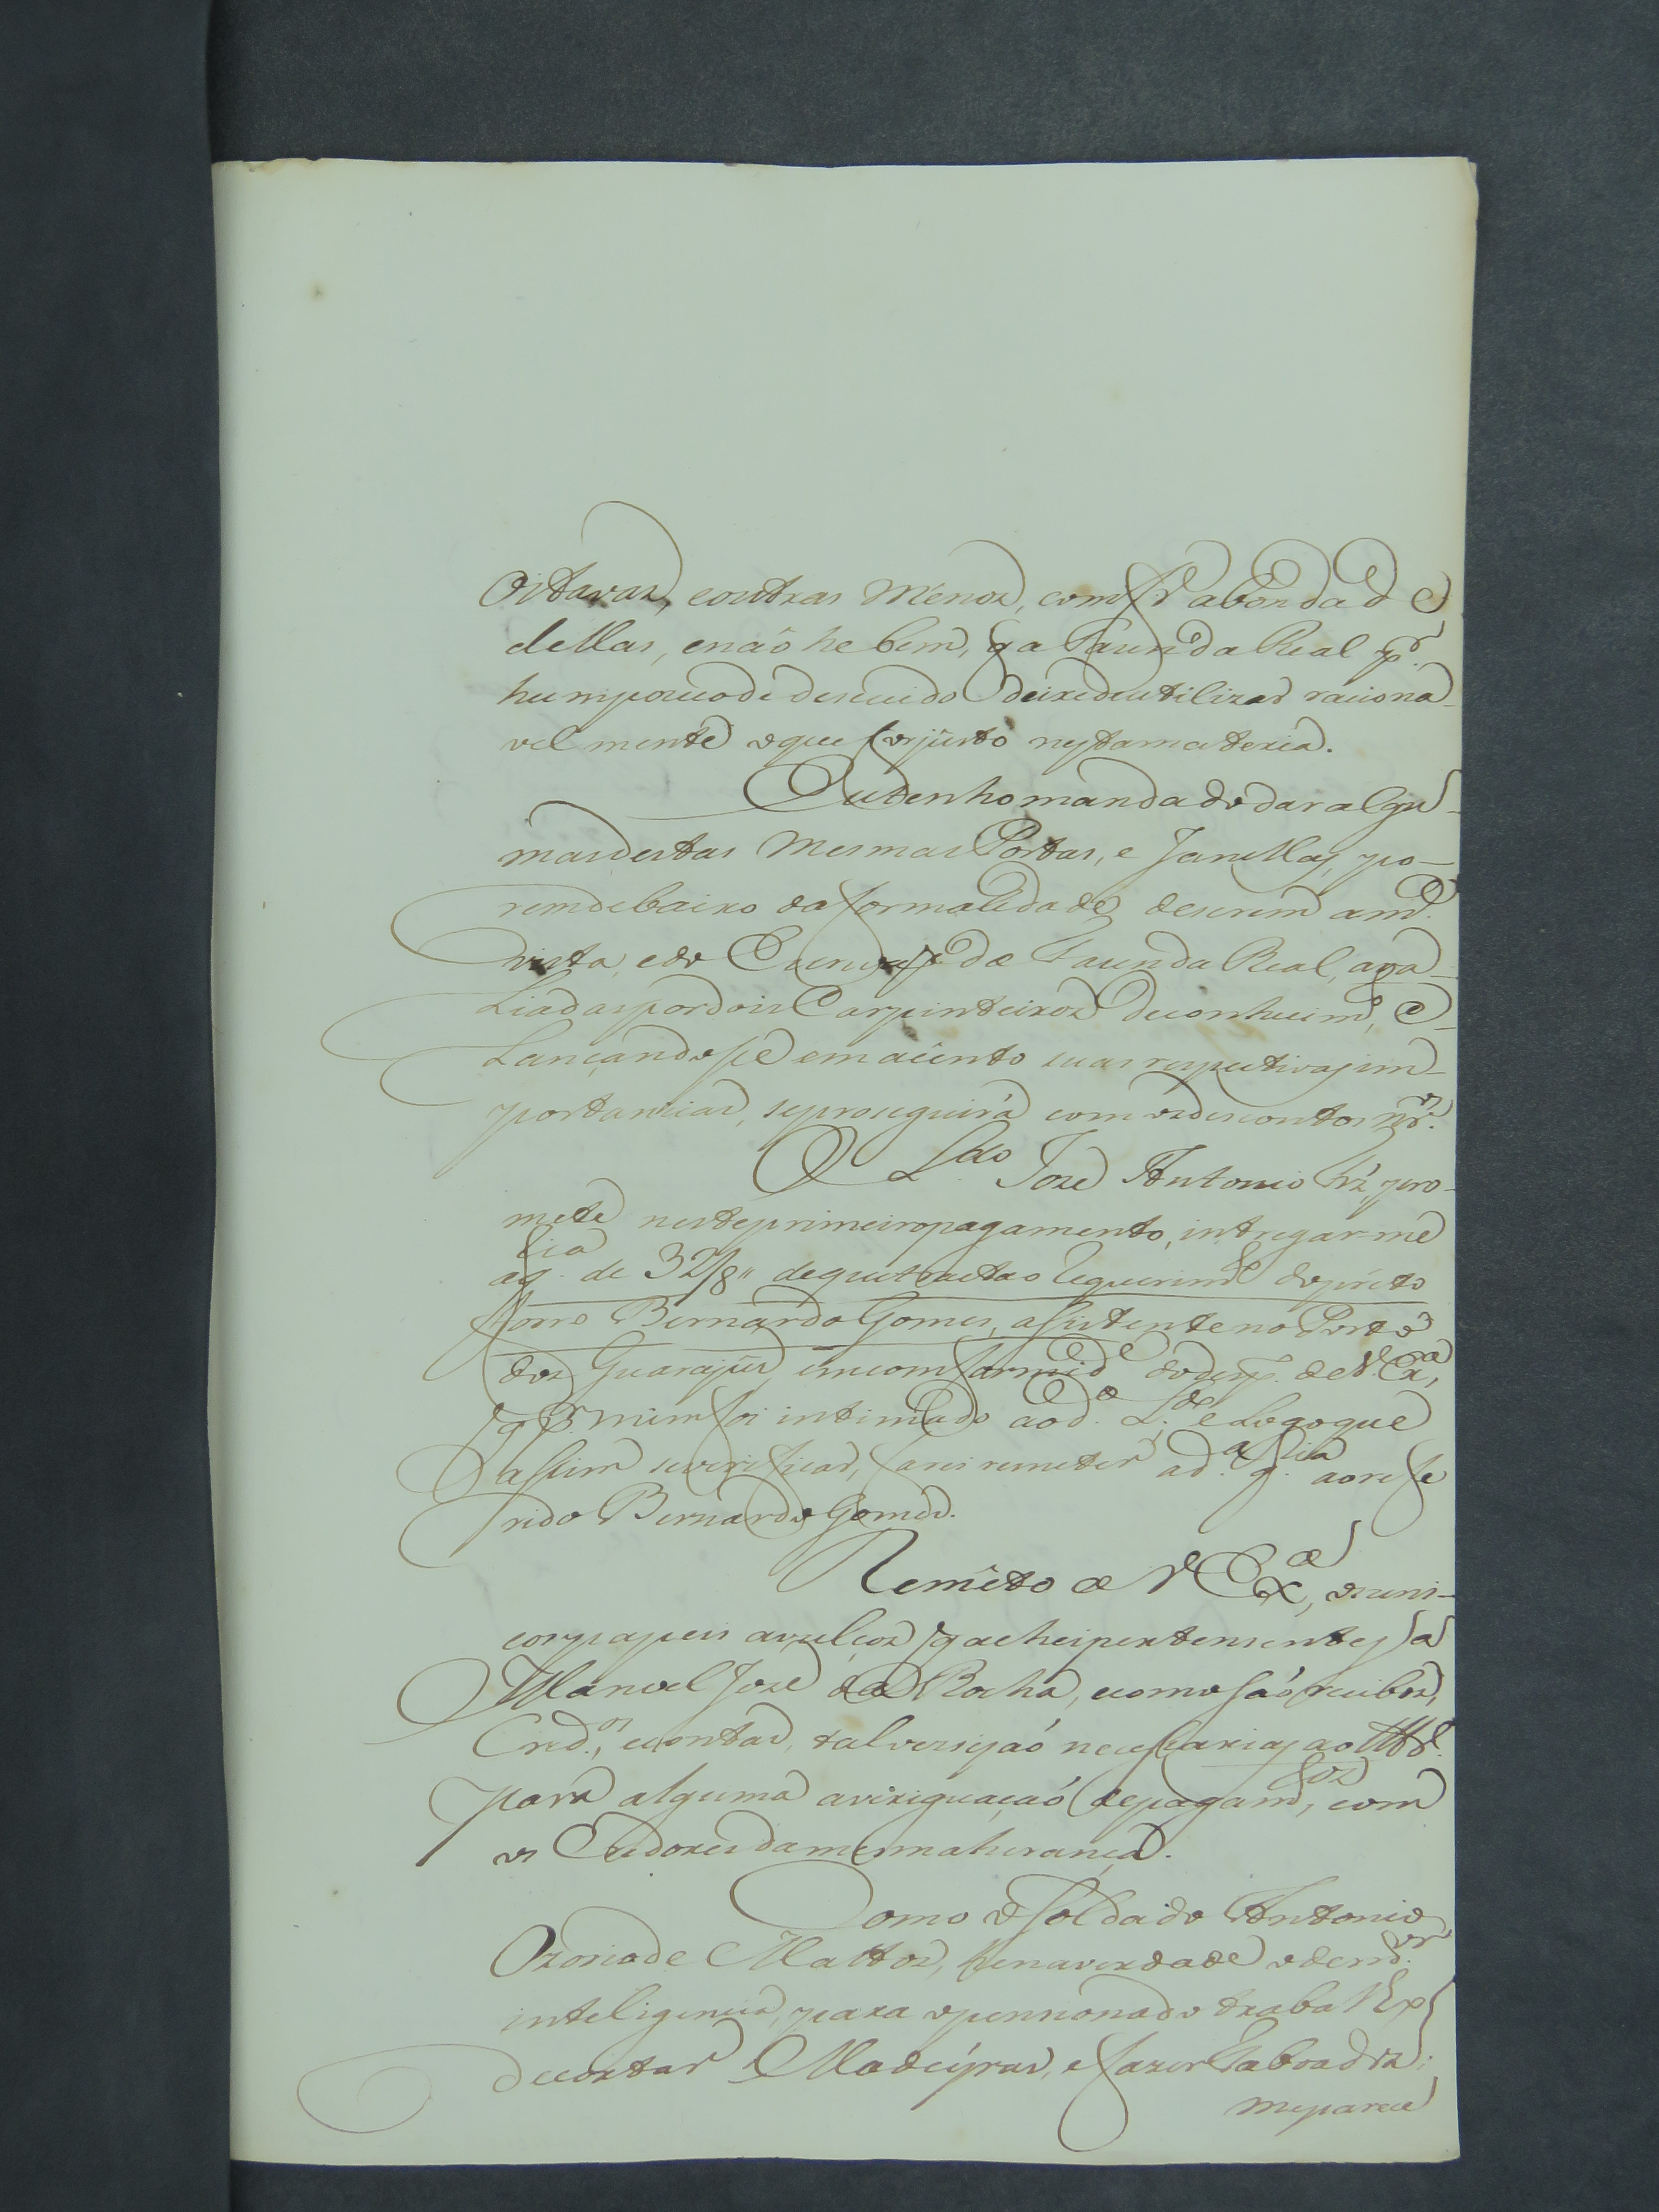 Oitavas, eoutras menos, comfr.ᵉ abondad e
dellas, enaõ he bem, q̃ a Fazenda Real p.ʳ
hum poucode descuido deixedeutilizar raciona-
velmente oque for justo nestamateria.
Eutenhomandado daralgu-
masdestas mesmas Portas, e Janellas, po-
remdebaixo daformalidade deserem am.ᵃ
vista, edo Escrivaõ da Fazenda Real, ava-
Liadaspordois Carpinteiros deconhecim.ᵗᵒ, e
Lançandosse emacento suas respectivas im-
portancias, seproseguirá com osdescontos nr.ᵒˢ
O L.ᵈᵒ Joze Antonio Frz', pro-
mete nesteprimeiropagamento, intregar-me
aq.ᵗⁱᵃ de 32/8.ᵃˢ dequetractao Requerim.ᵗᵒ dopreto
forro Bernardo Gomes, assistenteno Porto
dos Guarajús, emcomformid.ᵉ dodesp.º de V. Ex.ᵃ,
q̃ p.ʳ mim foi intimado aod.º L.ᵈᵒ, e Logoque
assim severificar, farei remeter ad.ᵃ q.ᵗⁱᵃ aorefe
rido Bernardo Gomes.
Remeto a V Ex.ᵃ, osuni-
cospapeis avulços q̃ achei pertensentes a
Manoel Joze da Rocha, ecomo saõ recibos,
Cred.ᵒˢ, econtas, talvesejaõ necessarias ao M.ᵐᵒ
para alguma aviriguaçaõ depagam.ᵗᵒˢ, com
os Credoresdamesmaherança.
Como o soldado Antonio
Ozoriode Mattos, henaverdade odem.ᵒʳ
inteligencia, para opensionado trabalho
decortar Madeyras, e fazer Taboados;
meparece